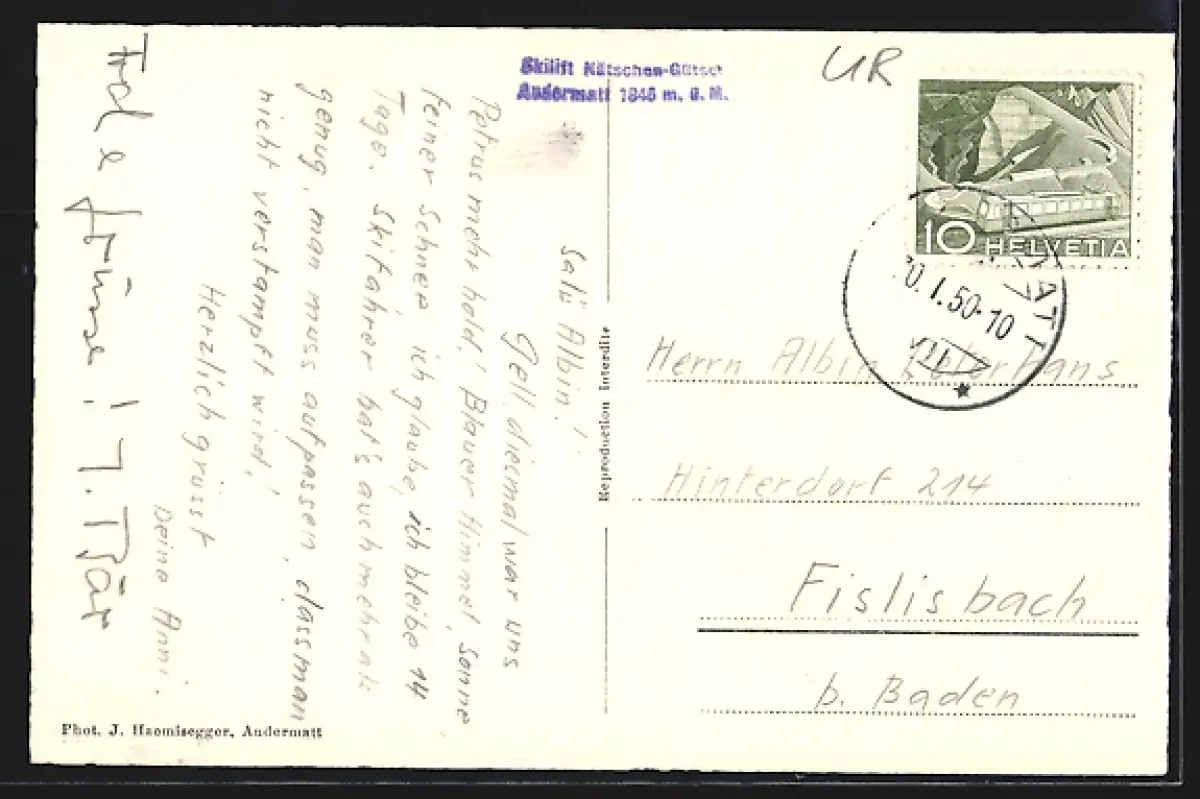 Skilift Nätschen-Gütsch
Andermatt 1845 m. ü. M.
UR
10 HELVETIA
I.50-10
VII
Salü Albin!
Gell, diesmal war uns
Petrus mehr hold! Blauer Himmel, Sonne
feiner Schnee ich glaube, ich bleibe 14
Tage. Skifahrer hat's auch mehr als
genug, man muss aufpassen, dass man
nicht verstampft wird!
Herzlich grüsst
Deine Anni.
Reproduction interdite
Herrn Albin
Hinterdorf 214
Fislisbach
b. Baden
Phot. J. Haemisegger, Andermatt